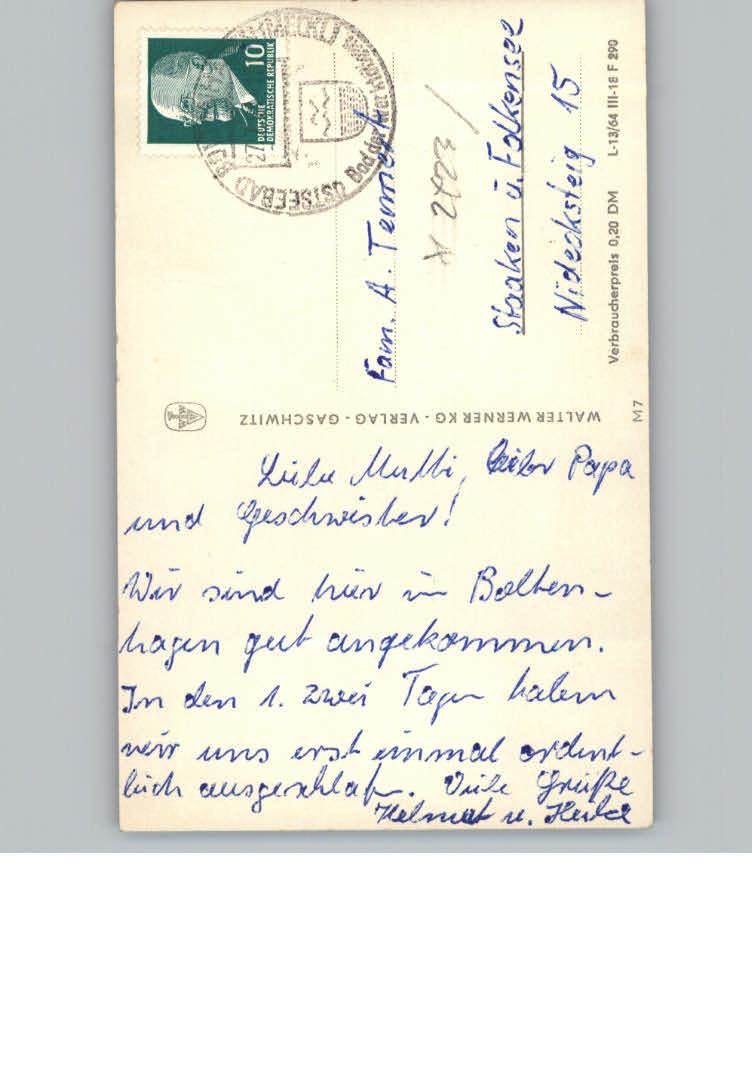 Liebe Mutti, lieber Papa
und Geschwister!
Wir sind hier in Bolten-
hagen gut angekommen.
In den 1. zwei Tagen haben
wir uns erst einmal ordent-
lich ausgeschlafen. Viele Grüße
Helmut u.
Fam. A.
Staaken ü. Falkensee
15
Verbraucherpreis 0,20 DM L-13/64 III-18 F 290
WALTER WERNER KG - VERLAG - GASCHWITZ
M 7
10
DEUTSCHE
DEMOKRATISCHE REPUBLIK
OSTSEEBAD
Bad der
27